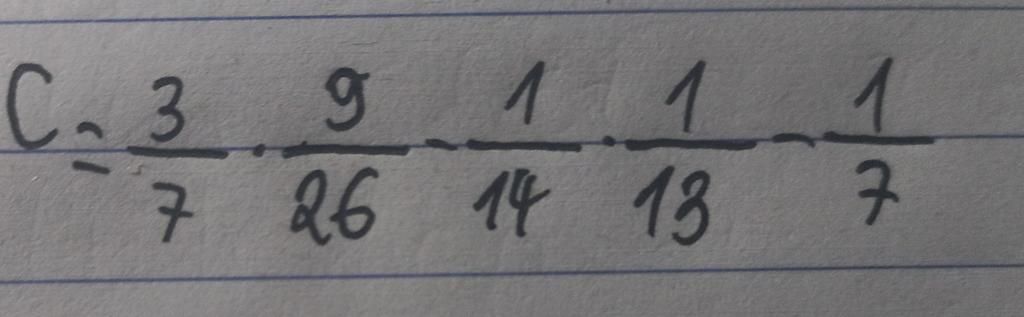 C = 3/7 · 9/26 - 1/14 · 1/13 - 1/7